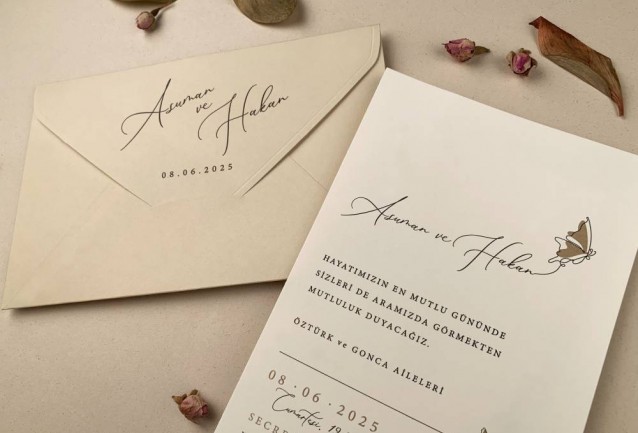 Asuman
ve
Hakan
08.06.2025
Asuman ve Hakan
HAYATIMIZIN EN MUTLU GÜNÜNDE
SİZLERİ DE ARAMIZDA GÖRMEKTEN
MUTLULUK DUYACAĞIZ.
ÖZTÜRK ve GONCA AİLELERİ
08.06.2025
Cumartesi, 19